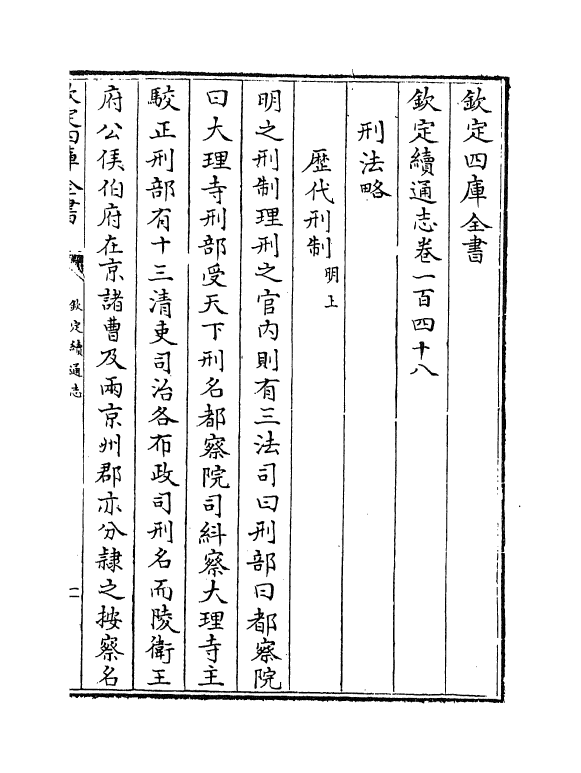 欽定四庫全書
欽定續通志卷一百四十八
刑法略
歷代刑制明上
明之刑制理刑之官內則有三法司曰刑部曰都察院
曰大理寺刑部受天下刑名都察院司糾察大理寺主
駮正刑部有十三清吏司治各布政司刑名而陵衛王
府公侯伯府在京諸曹及兩京州郡亦分隷之按察名
欽定四庫全書
欽定續通志
一